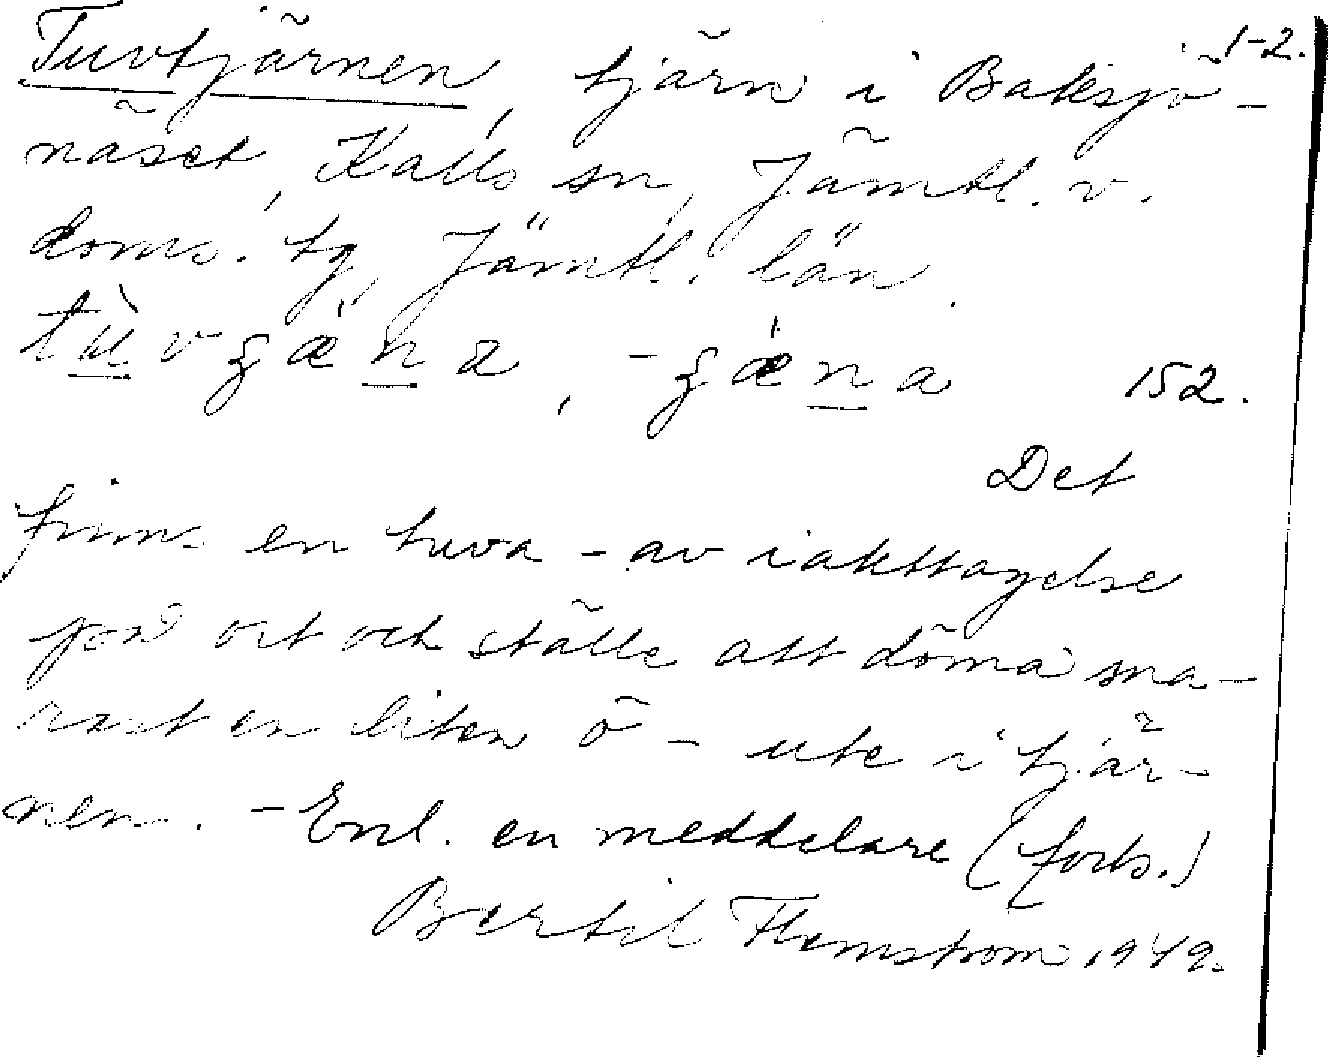 1-2.
Tuvtjärnen, tjärn i Baksjö-
näset, Kalls sn, Jämtl. v.
doms. tg, Jämtl. län.
152.
Det
finns en tuva - av iakttagelse
på ort och ställe att döma sna-
rast en liten ö - ute i tjär-
nen. - Enl. en meddelare (forts.)
Bertil Flemström 1949.